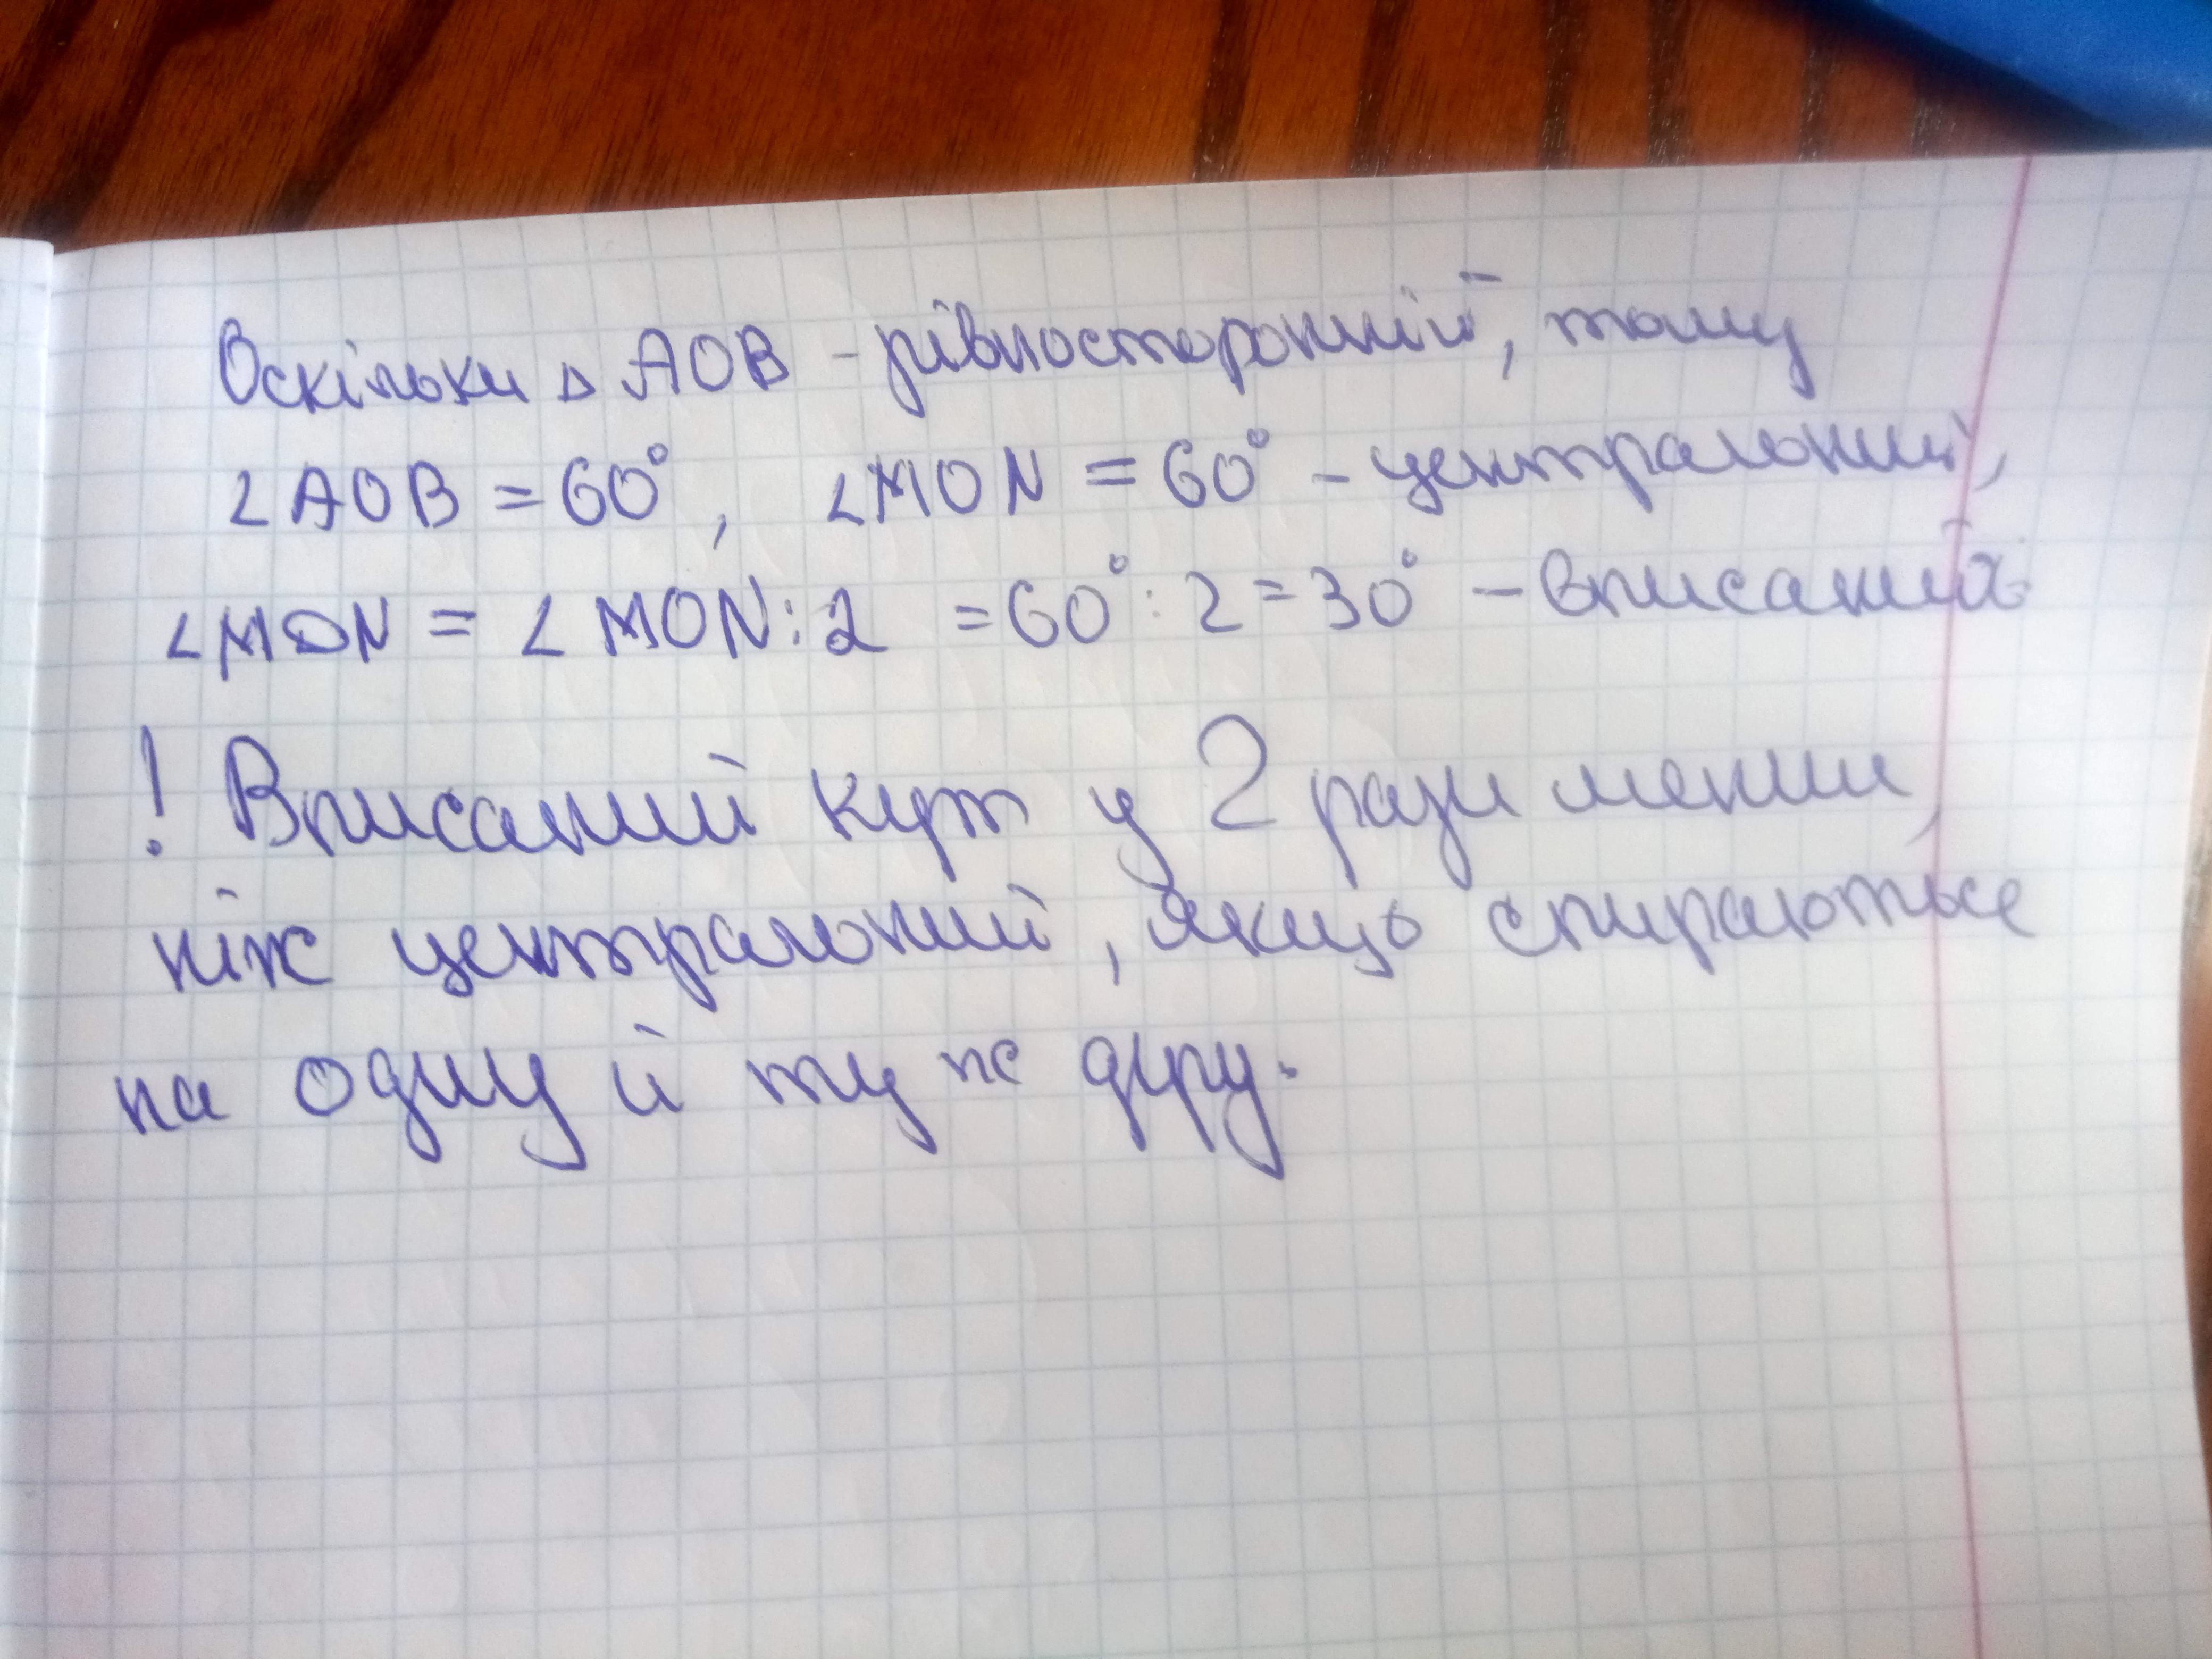 Оскільки △ AOB - рівносторонній, тому
∠AOB = 60°, ∠MON = 60° - центральний,
∠MDN = ∠MON:2 = 60° : 2 = 30° - вписаний
! Вписаний кут у 2 рази менши,
ніж центральний, якщо спираються
на одну й ту ж дугу.